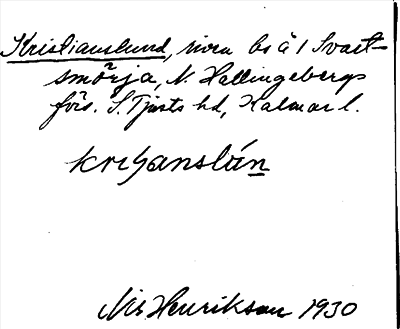 Kristianslund, inom bs å 1 Svart-
smörja, N. Hallingebergs
förs. S. Tjusts hd, Kalmar l.
Nils Henrikson 1930